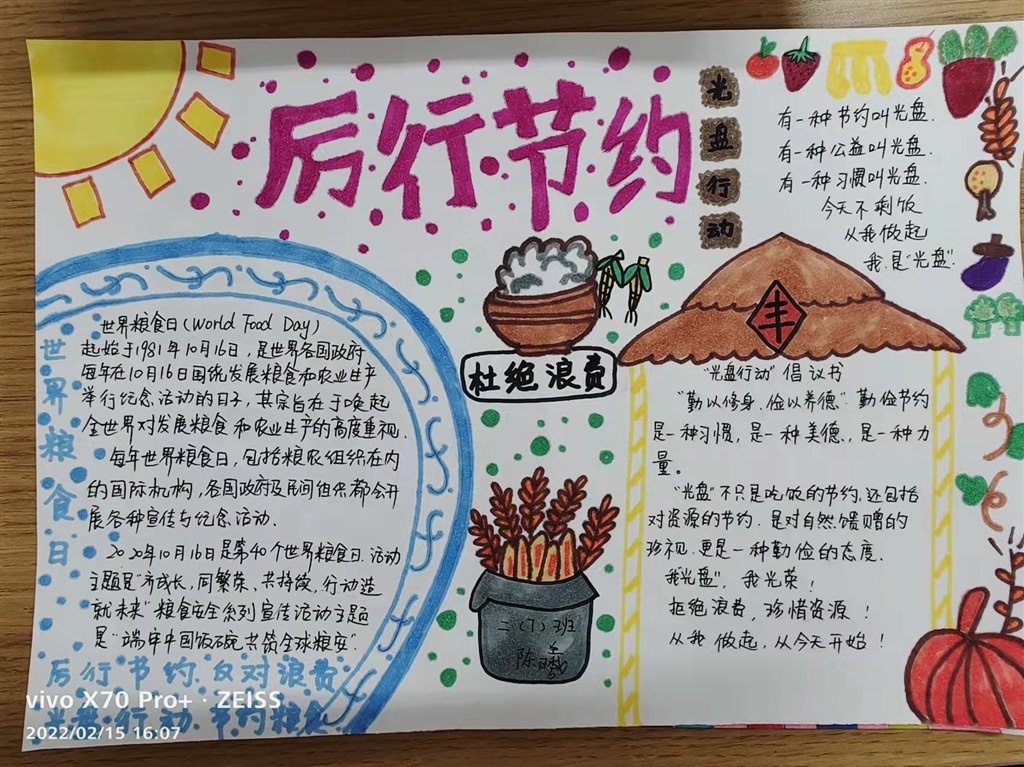 厉行节约
光盘行动
有一种节约叫光盘.
有一种公益叫光盘.
有一种习惯叫光盘.
今天不剩饭
从我做起
我是“光盘”
世界粮食日
世界粮食日(World Food Day)
起始于1981年10月16日，是世界各国政府
每年在10月16日围绕发展粮食和农业生产
举行纪念活动的日子，其宗旨在于唤起
全世界对发展粮食和农业生产的高度重视.
每年世界粮食日，包括粮农组织在内
的国际机构，各国政府及民间组织都会开
展各种宣传与纪念活动.
2020年10月16日是第40个世界粮食日.活动
主题是“齐成长，同繁荣、共持续，行动造
就未来”粮食安全系列宣传活动主题
是“端牢中国饭碗共筑全球粮安”.
厉行节约.反对浪费
光盘行动.节约粮食
丰
杜绝浪费
二(7)班
“光盘行动”倡议书
“勤以修身，俭以养德”.勤俭节约
是一种习惯，是一种美德，是一种力
量。
“光盘”不只是吃饭的节约.还包括
对资源的节约.是对自然馈赠的
珍视.更是一种勤俭的态度.
我“光盘”，我光荣！
拒绝浪费，珍惜资源！
从我做起，从今天开始！
vivo X70 Pro+ · ZEISS
2022/02/15 16:07